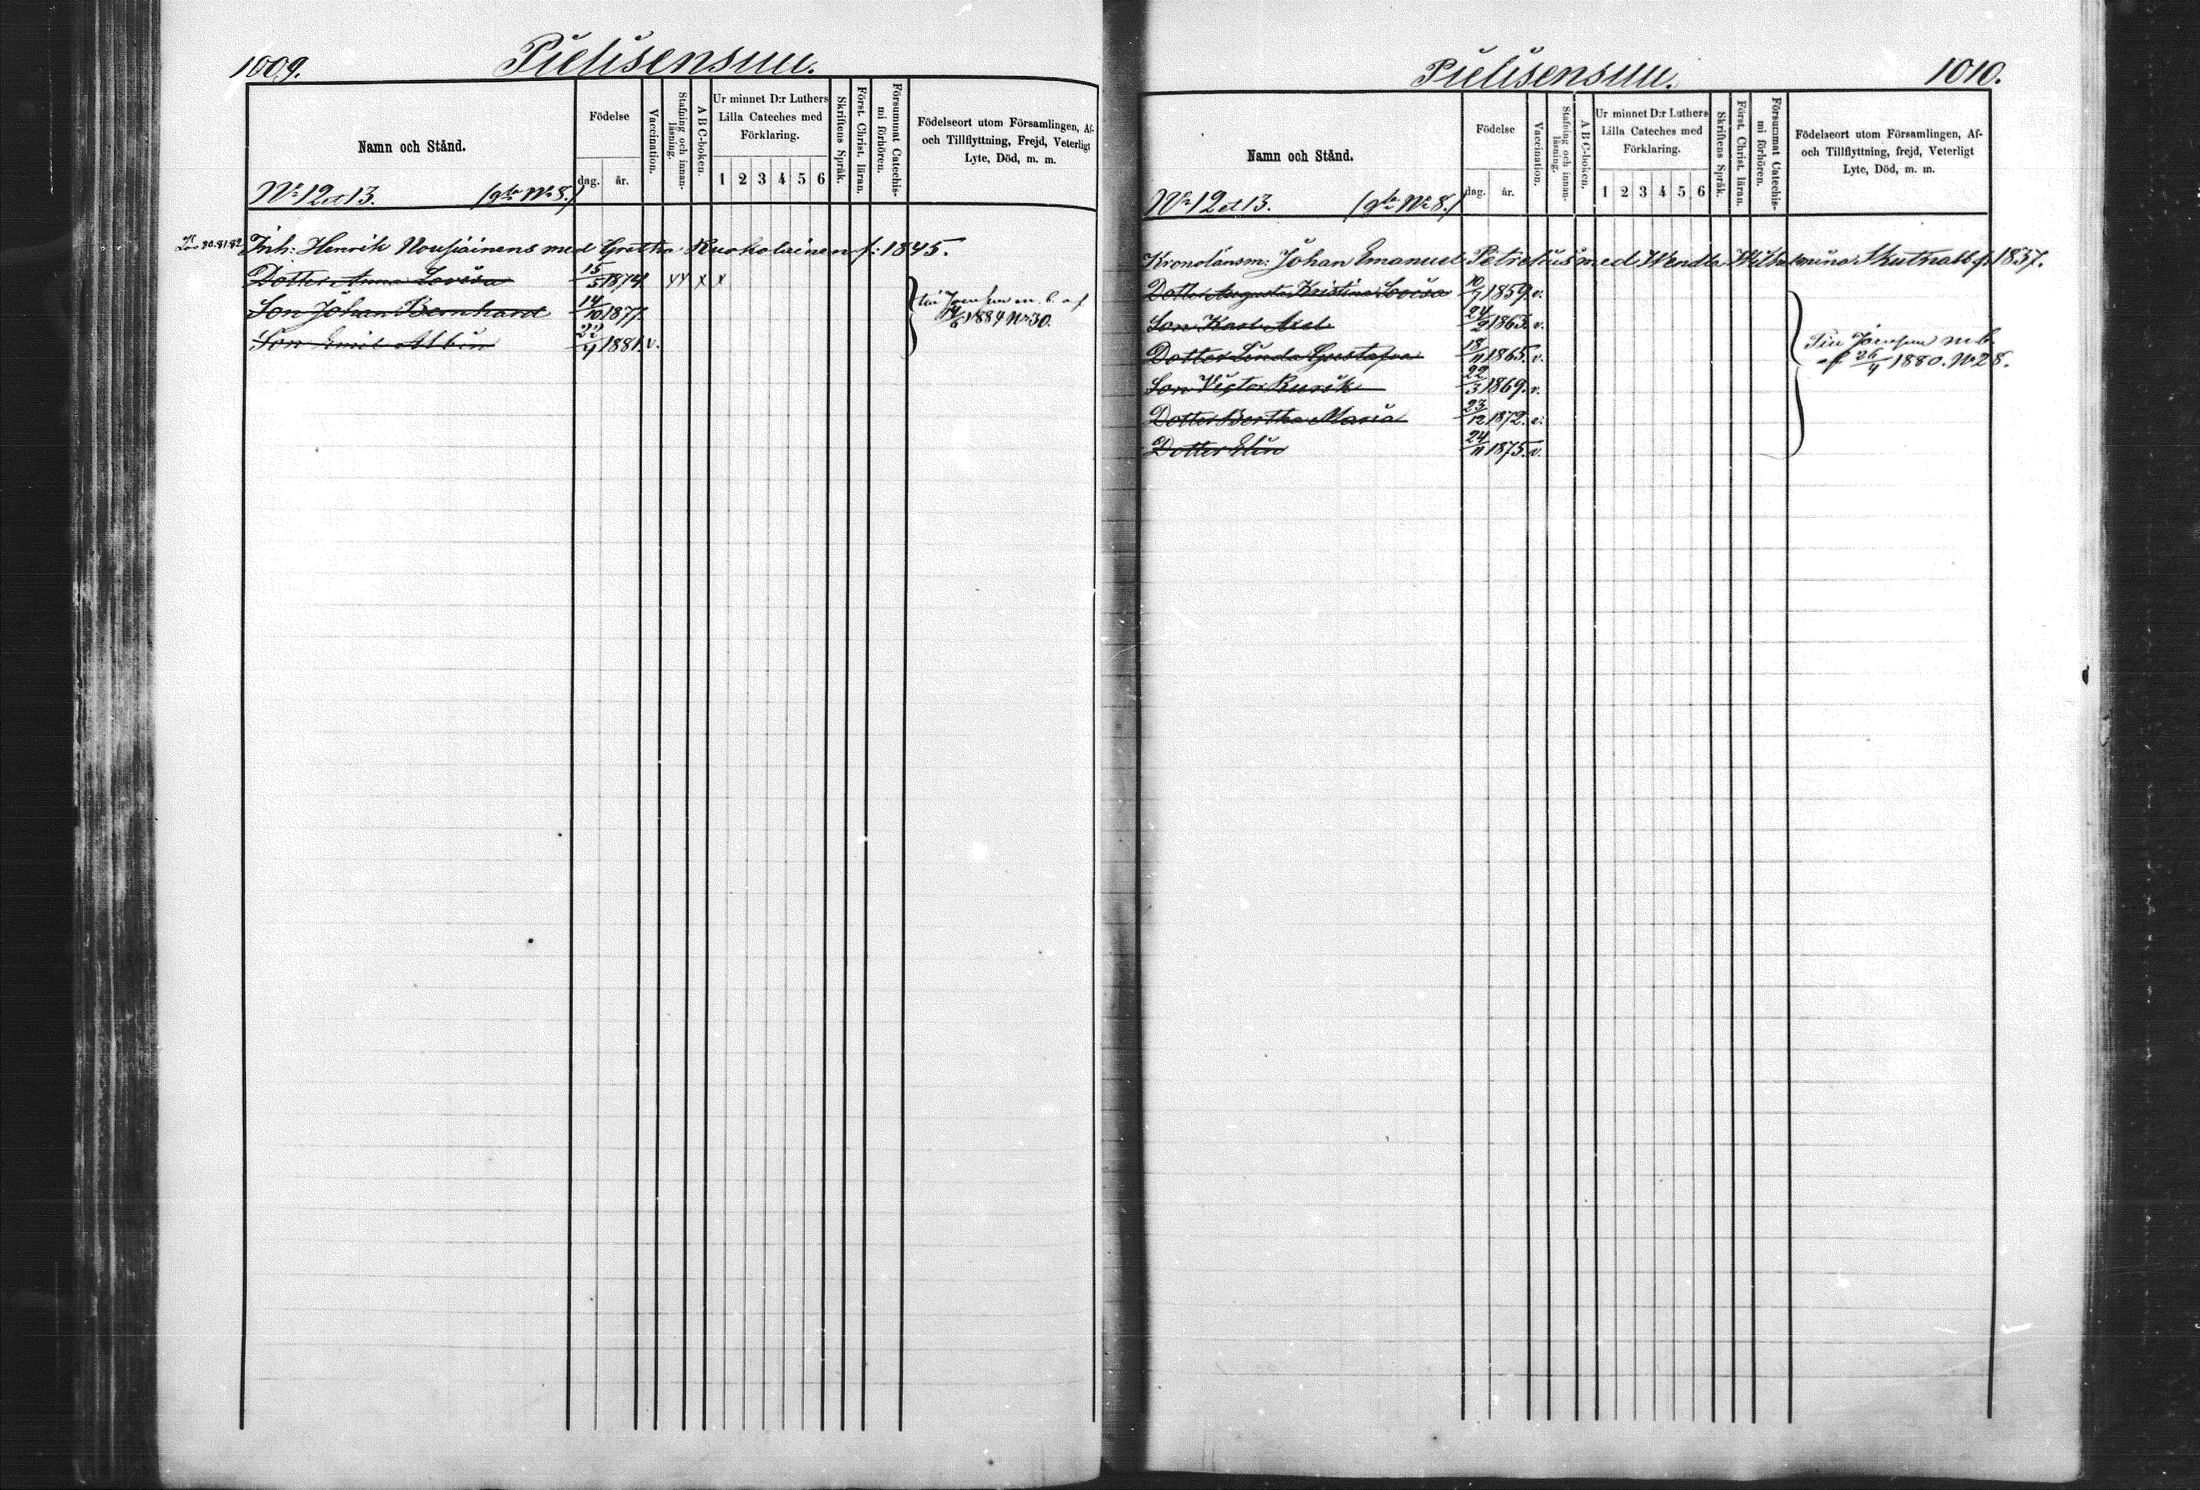 1009.
Pielisensuu.
Namn och Stånd.
Födelse
dag. år.
Vaccination.
Stafning och innanläsning.
A B C-boken.
Ur minnet D:r Luthers
Lilla Cateches med
Förklaring.
1 2 3 4 5 6
Skriftens Språk.
Först. Christ. läran.
Försummat Catechismi förhören.
Födelseort utom Församlingen, Af-
och Tillflyttning, Frejd, Veterligt
Lyte, Död, m. m.
No 12 et 13. No 8.)
30.81.82 Inh: Henrik Nousiainens med Gretha Kuokolainen f: 1845.
Dotter Anna Lovisa 15/5 1874 x x
Son Johan Bernhard 14/10 1877.
Son Emil Albin 22/4 1881. v.
till Joensuu m. b. af
1884 No 30.
Pielisensuu.
1010.
Namn och Stånd.
Födelse
dag. år.
Vaccination.
Stafning och innanläsning.
A B C-boken.
Ur minnet D:r Luthers
Lilla Cateches med
Förklaring.
1 2 3 4 5 6
Skriftens Språk.
Först. Christ. läran.
Försummat Catechismi förhören.
Födelseort utom Församlingen, Af-
och Tillflyttning, frejd, Veterligt
Lyte, Död, m. m.
No 12 et 13. No 8.)
Kronolänsm: Johan Emanuel Petrelius med Wendla Wilhelmina Skutnabb f: 1837.
Dotter Augusta Kristina Lovisa 10/7 1859. v.
Son Karl Axel 24/2 1863. v.
Dotter Linda Gustafva 18/11 1865. v.
Son Victor Rurik 22/3 1869. v.
Dotter Bertha Maria 23/12 1872. v.
Dotter Elin 24/11 1875. v.
Till Joensuu m. b.
af 26/4 1880. No 28.